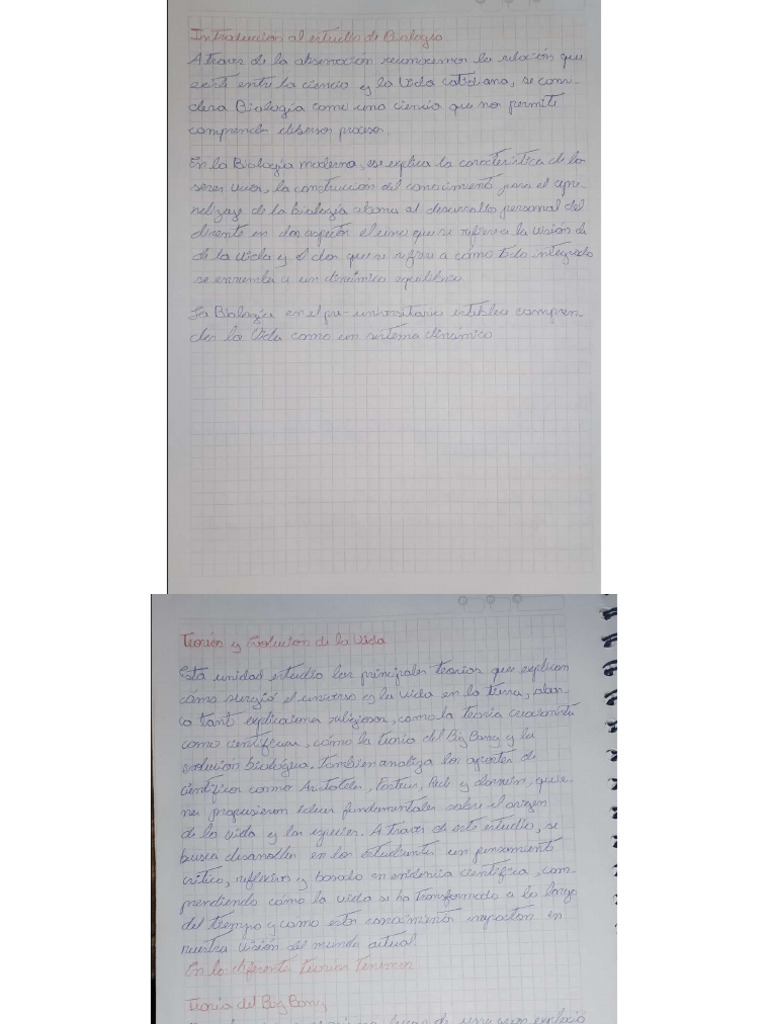 Introducción al estudio de Biología
A traves de la observacion reconocemos la relación que
existe entre la ciencia y la Vida cotidiana, se consi-
dera Biología como una ciencia que nos permite
comprender diversos procesos.
En la Biología moderna, se explica la característica de los
seres vivos, la construcción del conocimiento para el apre-
ndizaje de la biología abona al desarrollo personal del
dicente en dos aspectos el uno que se refiere a la visión de
de la vida y el dos que se refiere a cómo todo integrado
se encuentra a un dinámico equilibrio
La Biología en el pre-universitario establece compren-
der la Vida como un sistema dinámico
Teorías y Evolución de la Vida
Esta unidad estudia las principales teorías que explican
cómo surgió el universo y la vida en la tierra, abar-
ca tant explicaciones religiosas, como la teoría creacionista
como científicas, cómo la teoría del Big Bang y la
evolución biológica. También analiza los aportes de
científicos como Aristóteles, Pasteur, Redi y darwin, quie-
nes propusieron ideas fundamentales sobre el origen
de la vida y las especies. A traves de este estudio, se
busca desarrollar en los estudiantes un pensamiento
crítico, reflexivo y basado en evidencia científica, com-
prendiendo cómo la vida se ha transformado a lo largo
del tiempo y como estos conocimientos impactan en
nuestra visión del mundo actual.
En la diferente teorías tenemos
Teoría del Big Bang